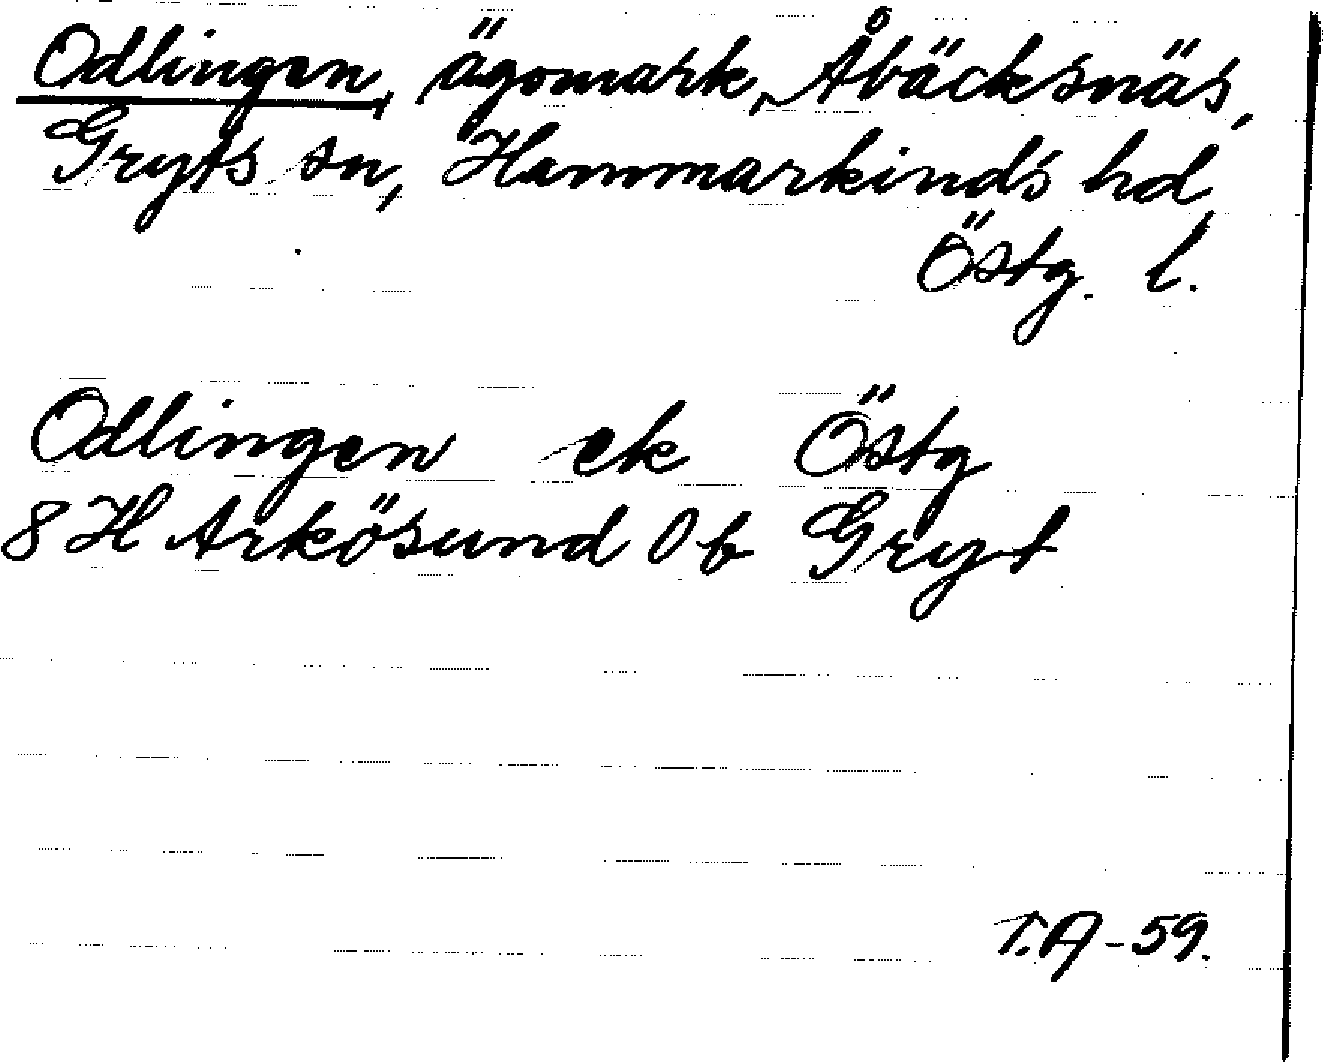 Odlingen, ägomark, Åbäcksnäs,
Gryts sn, Hammarkinds hd
Östg. l.
Odlingen ek Östg
8 H Arkösund 0 b Gryt
T.A-59.